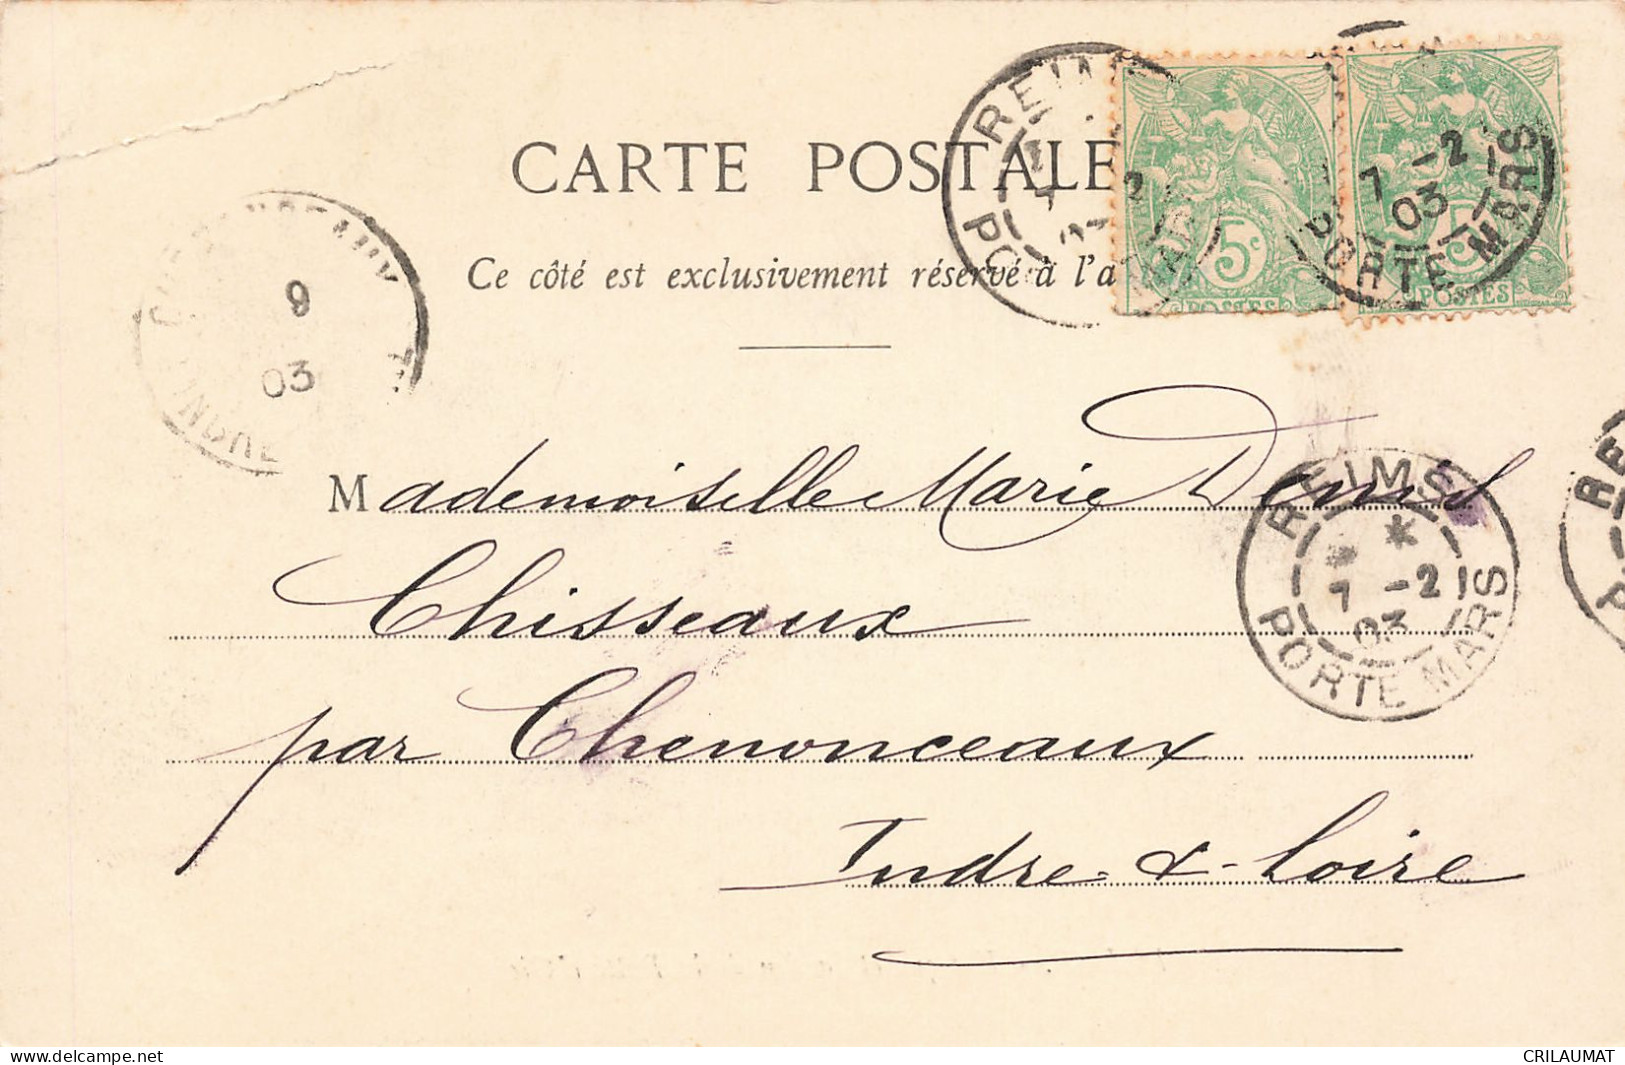 CARTE POSTALE
Ce côté est exclusivement réservé à l'a
5c
POSTES
5c
POSTES
REIMS
PORTE MARS
7 -2
03
9
03
INDRE
Mademoiselle Marie Denis
Chisseaux
par Chenonceaux
Indre-&-Loire
REIMS
PORTE MARS
7 -2
03
RE
delcampe.net
CRILAUMAT